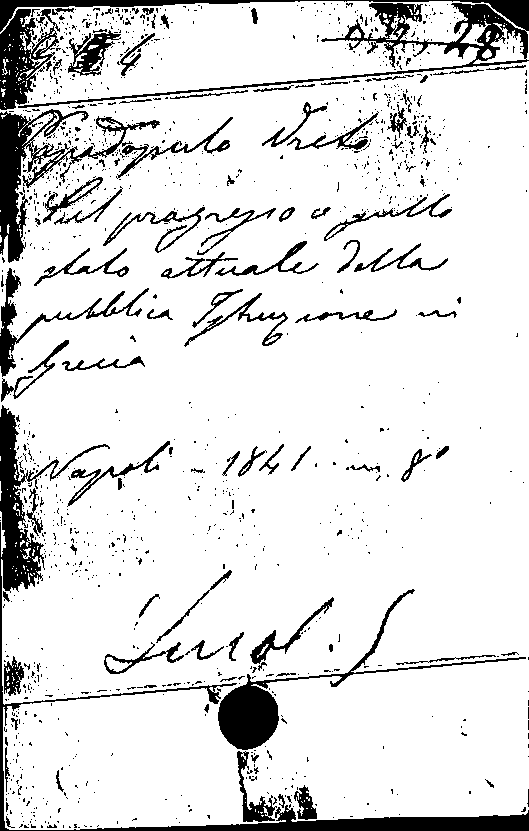 D, 2, 28
Papadopulo Vreto
Sul progresso e sullo
stato attuale della
pubblica Istruzione in
Grecia
Napoli - 1841. in 8º